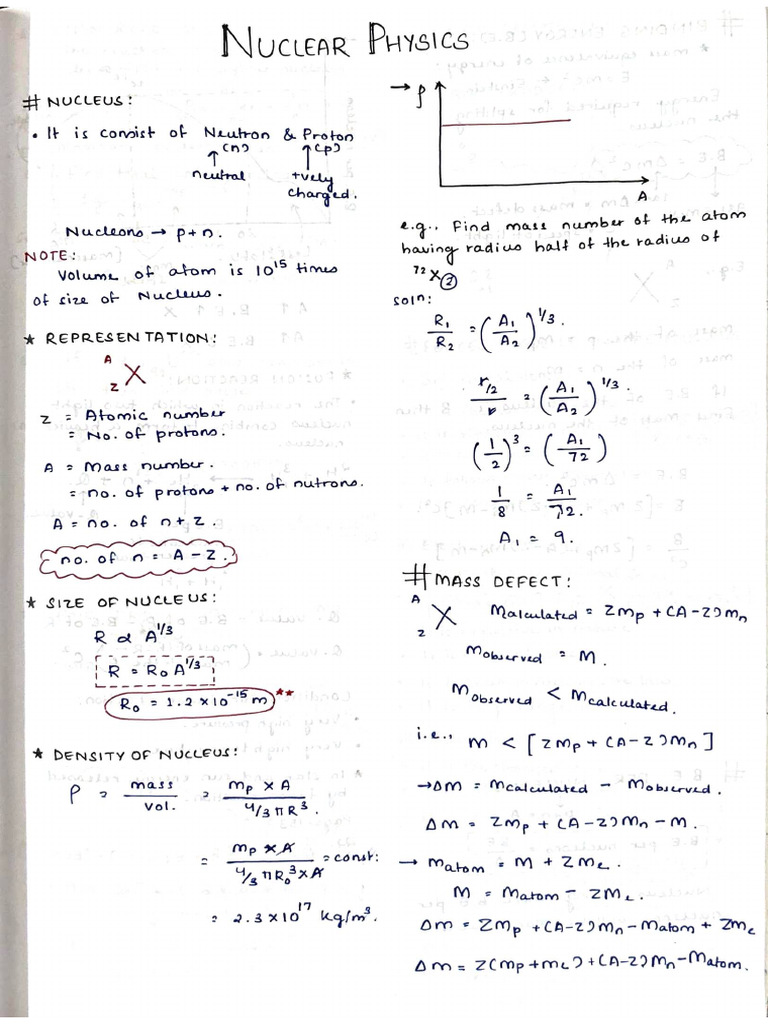 NUCLEAR PHYSICS
# NUCLEUS:
• It is consist of Neutron & Proton
(n) (p)
neutral +vely
charged.
Nucleons → p+n.
NOTE:
Volume of atom is 10¹⁵ times
of size of Nucleus.
★ REPRESENTATION:
A
X
Z
Z = Atomic number
= No. of protons.
A = Mass number.
= no. of protons + no. of nutrons.
A = no. of n + Z.
no. of n = A – Z.
★ SIZE OF NUCLEUS:
R α A^1/3
R = R₀ A^1/3
R₀ = 1.2 × 10⁻¹⁵ m **
★ DENSITY OF NUCLEUS:
ρ = mass/vol. = mp × A / 4/3 π R³.
= mp × A / 4/3 π R₀³ × A = const:
= 2.3 × 10¹⁷ kg/m³.
→ ρ
A
e.g., Find mass number of the atom
having radius half of the radius of
⁷² X ②
soln:
R₁/R₂ = (A₁/A₂)^1/3.
r/2 / r = (A₁/A₂)^1/3.
(1/2)³ = (A₁/72)
1/8 = A₁/72.
A₁ = 9.
# MASS DEFECT:
A
X Malculated = Zmp + (A-Z)mn
Z
Mobserved = M.
Mobserved < Mcalculated.
i.e., M < [Zmp + (A-Z)mn]
→ Δm = Mcalculated – Mobserved.
Δm = Zmp + (A-Z)mn – M.
→ Matom = M + Zme.
M = Matom – Zme.
Δm = Zmp + (A-Z)mn – Matom + Zme
Δm = Z(mp+me) + (A-Z)mn – Matom.